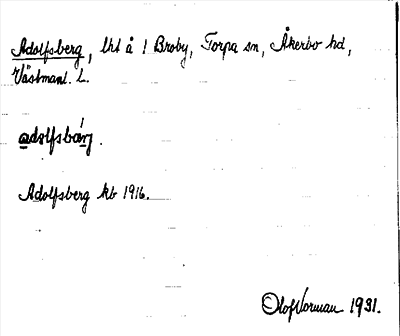 Adolfsberg, lht å 1 Broby, Torpa sn, Åkerbo hd,
Västmanl. L.
adolfsbärj.
Adolfsberg kb 1916.
Olof Norman 1931.